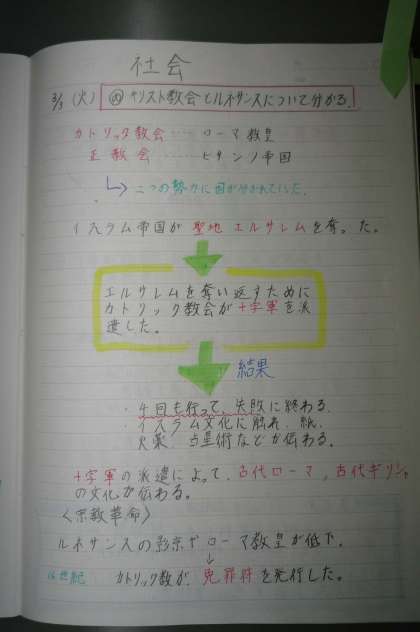 社会
3/3 (火) め キリスト教会とルネサンスについて分かる.
カトリック教会 …… ローマ教皇
正教会 …… ビザンツ帝国
二つの勢力に国が分かれていた.
イスラム帝国が 聖地 エルサレムを奪った.
エルサレムを奪い返すために
カトリック教会が十字軍を派
遣した.
結果
・4回も行って、失敗に終わる.
・イスラム文化に触れ、紙、
火薬、占星術などが伝わる.
十字軍の派遣によって、古代ローマ、古代ギリシャ
の文化が伝わる.
〈宗教革命〉
ルネサンスの影響でローマ教皇が低下.
↓
16世紀 カトリック教が、免罪符を発行した.